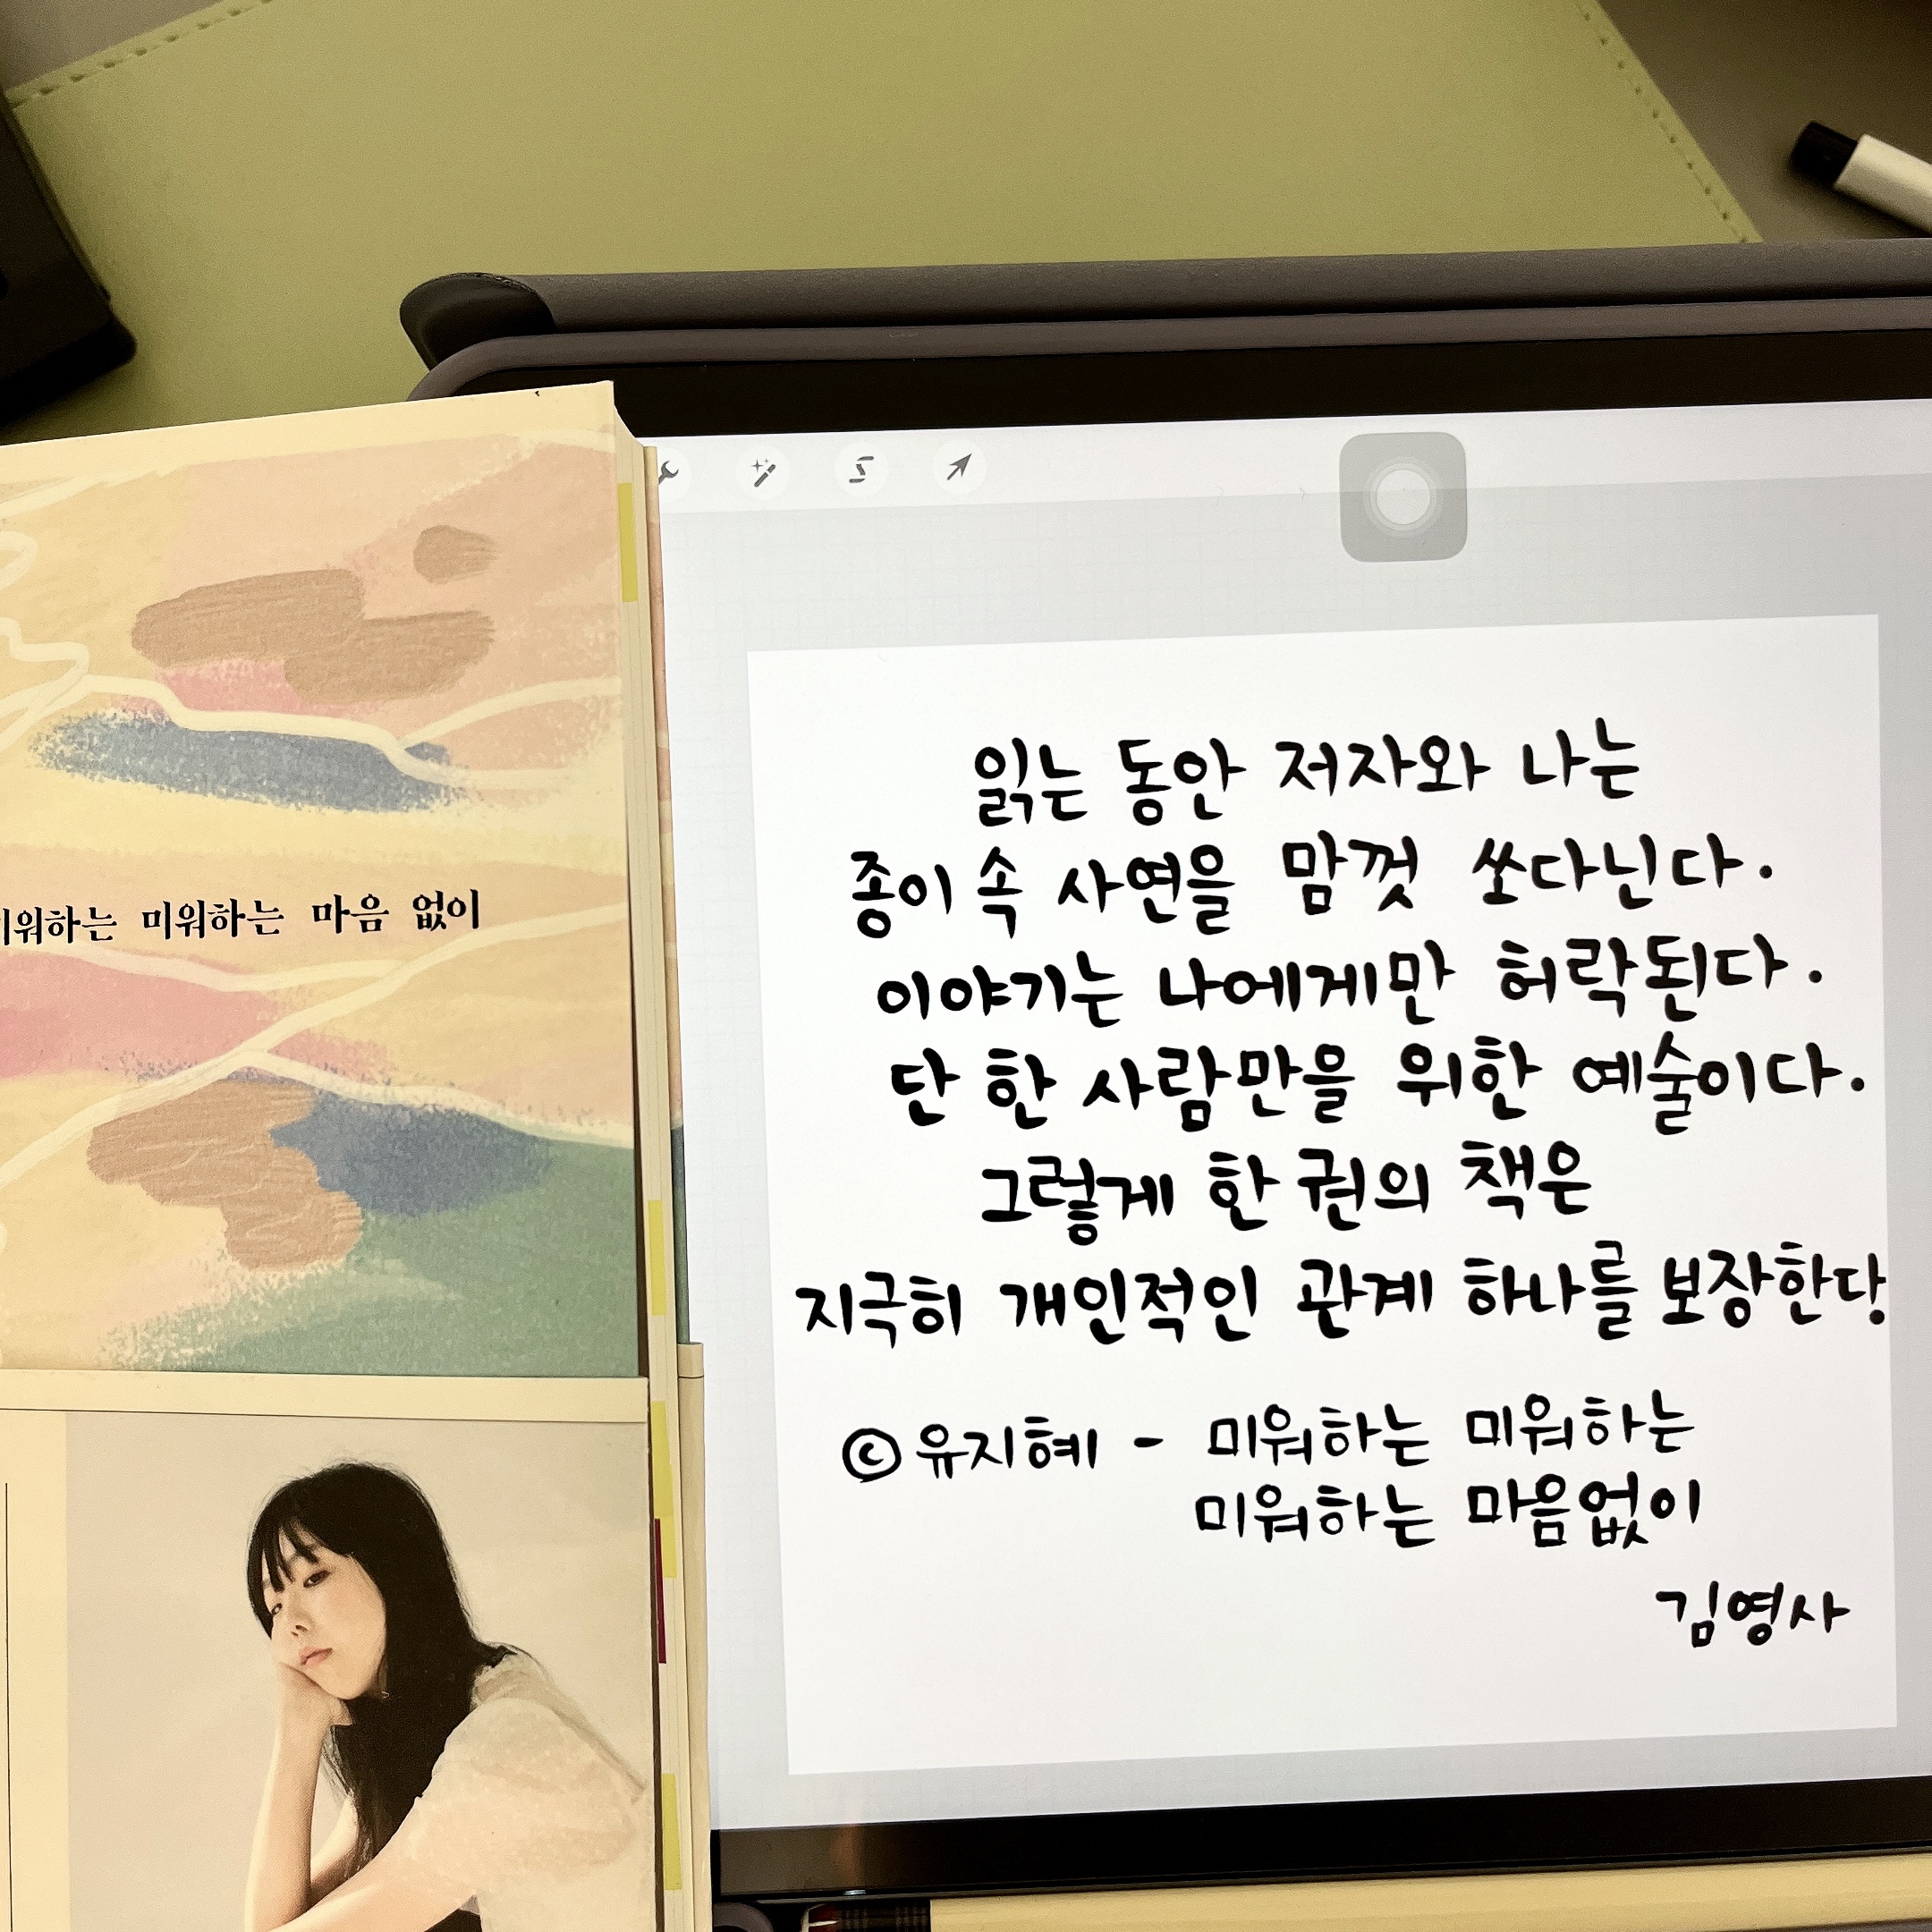 미워하는 미워하는 마음 없이
읽는 동안 저자와 나는
종이 속 사연을 맘껏 쏘다닌다.
이야기는 나에게만 허락된다.
단 한 사람만을 위한 예술이다.
그렇게 한 권의 책은
지극히 개인적인 관계 하나를 보장한다.
©유지혜 - 미워하는 미워하는
미워하는 마음없이
김영사